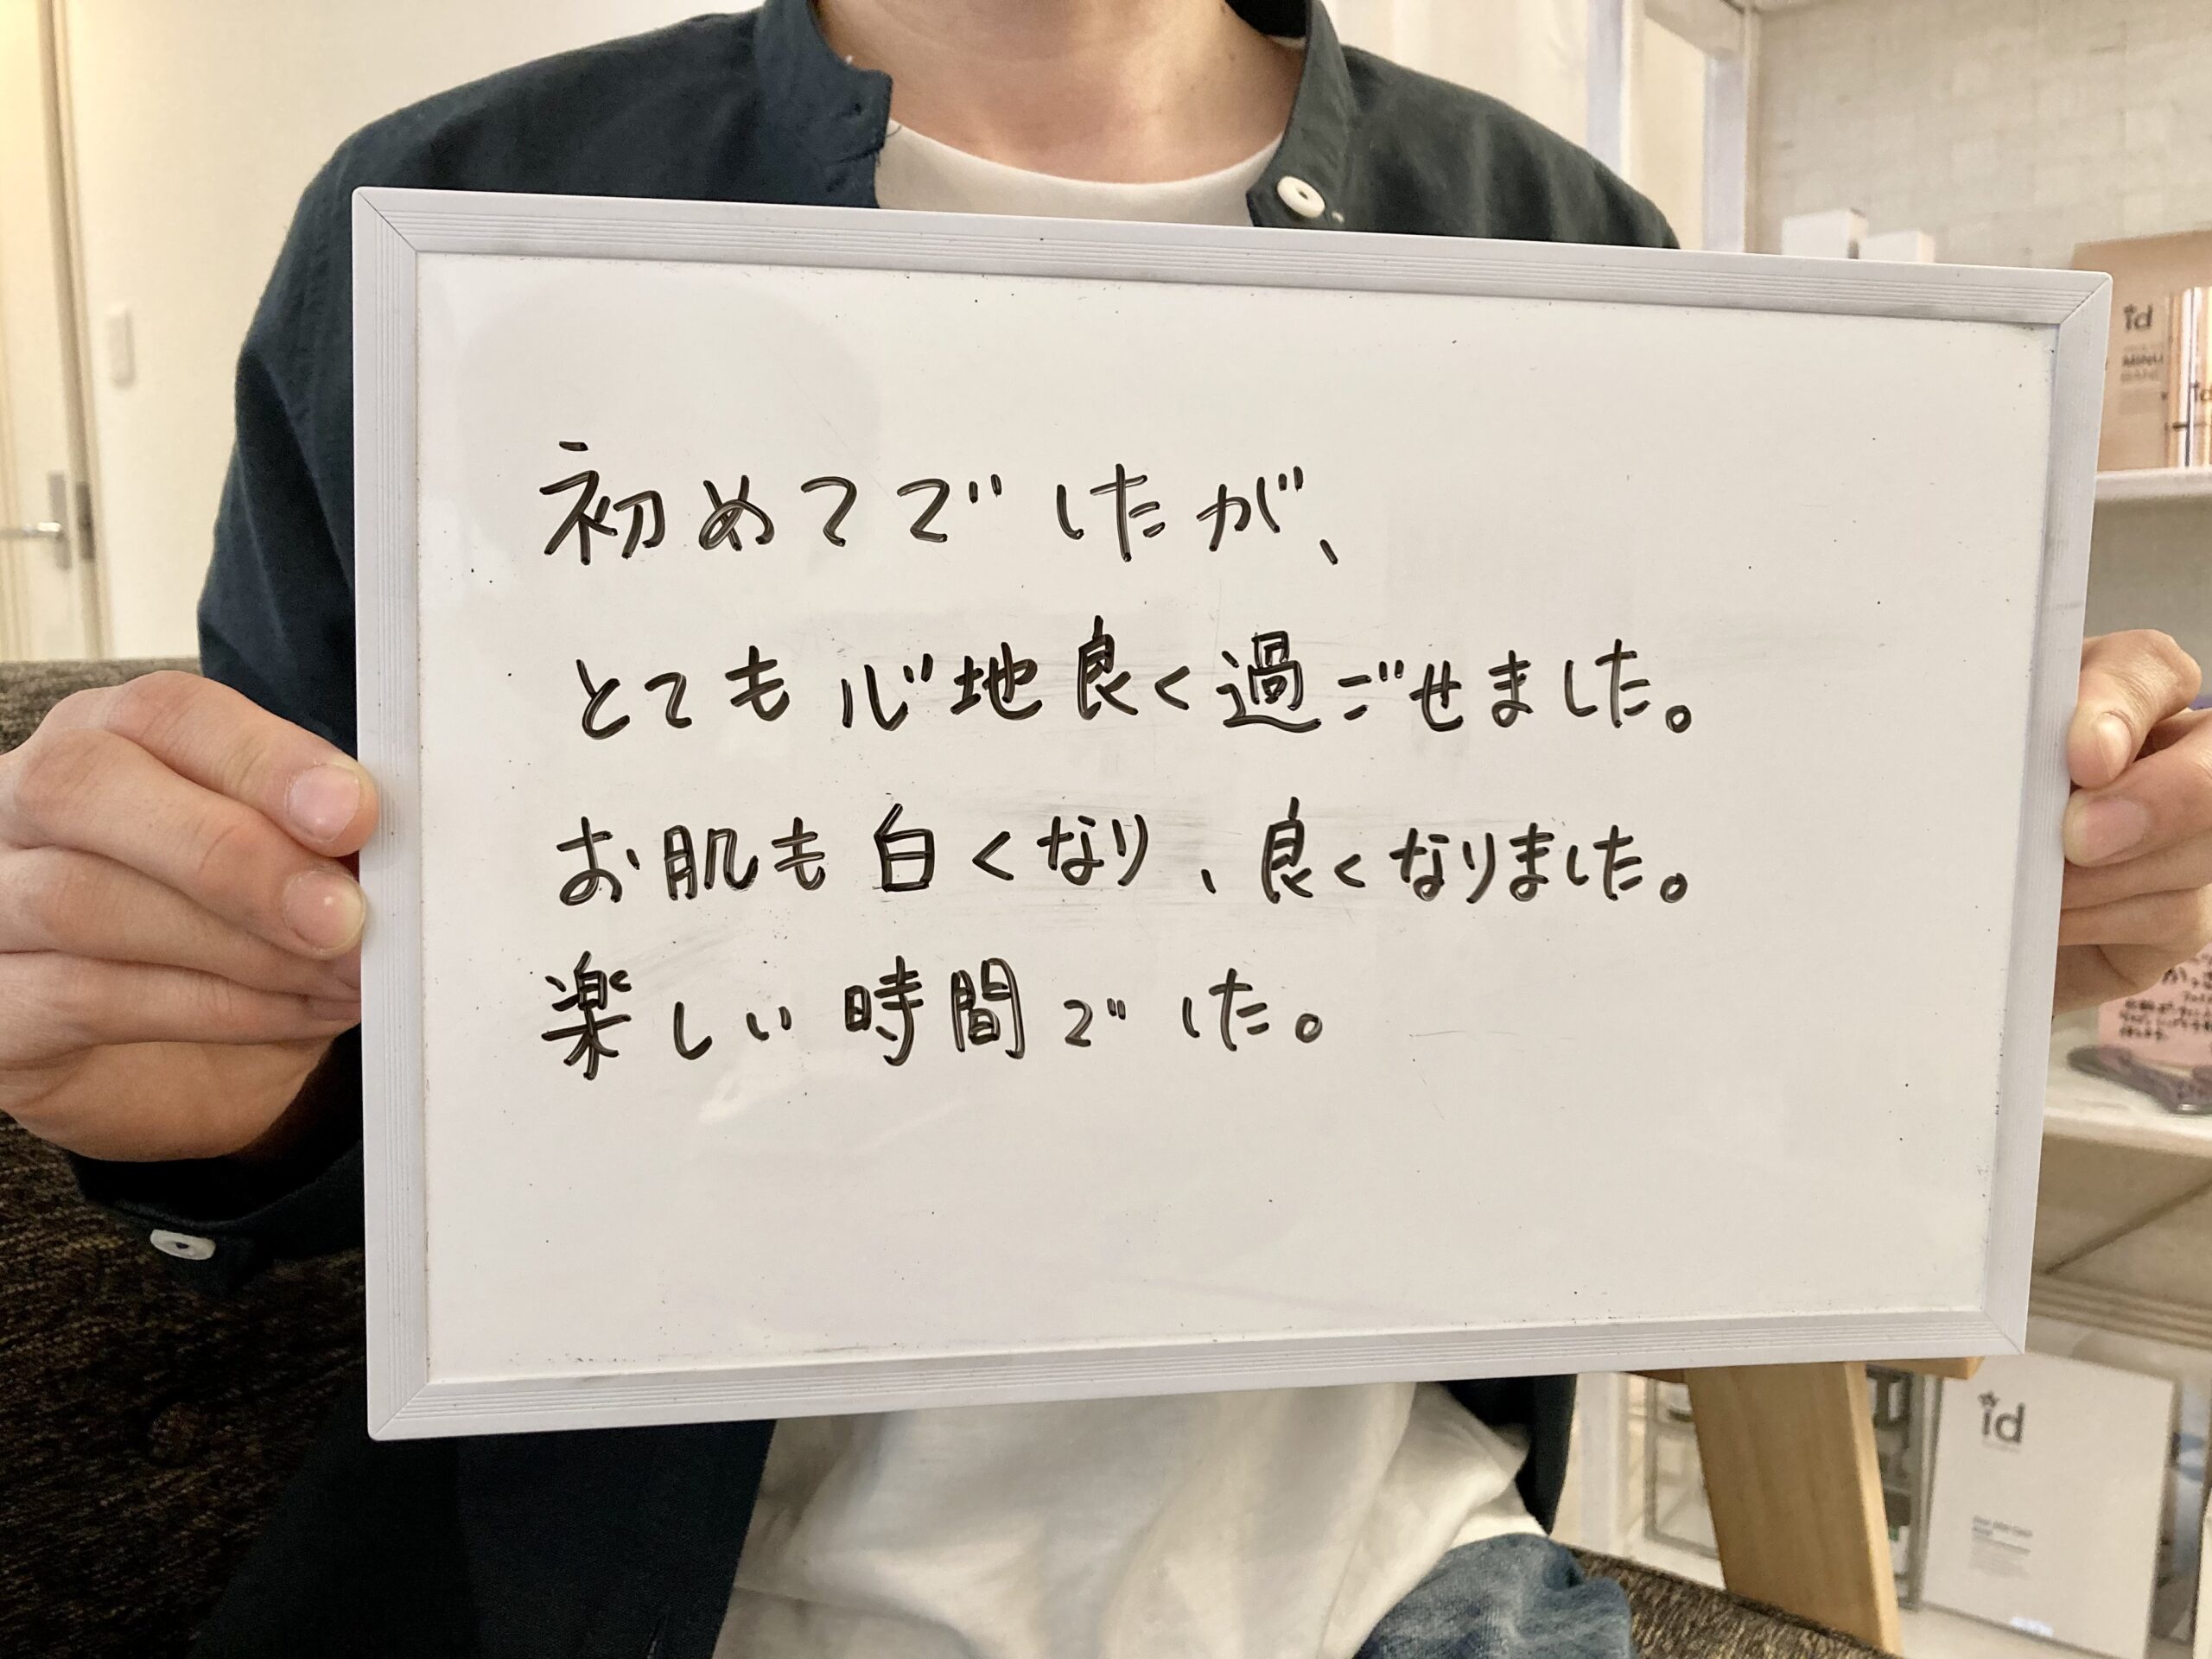 初めてでしたが、
とても心地良く過ごせました。
お肌も白くなり、良くなりました。
楽しい時間でした。
id
MINU
id